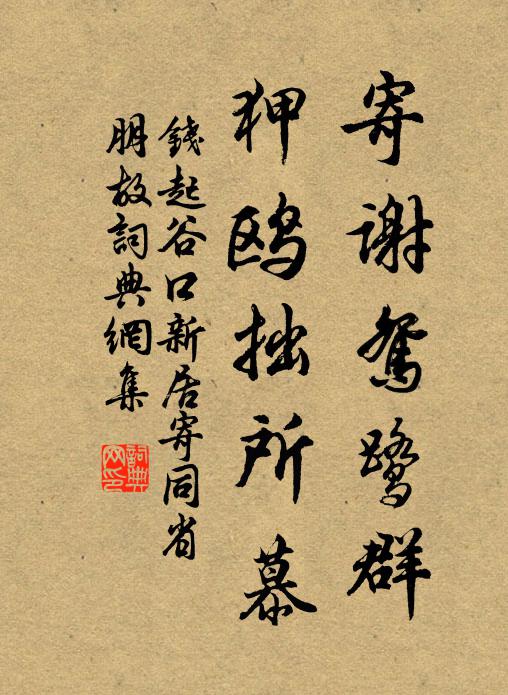 寄谢鴛鷺群
狎鸥拙所慕
錢起谷口新居寄同省
朋故詞典網集
詞典網印